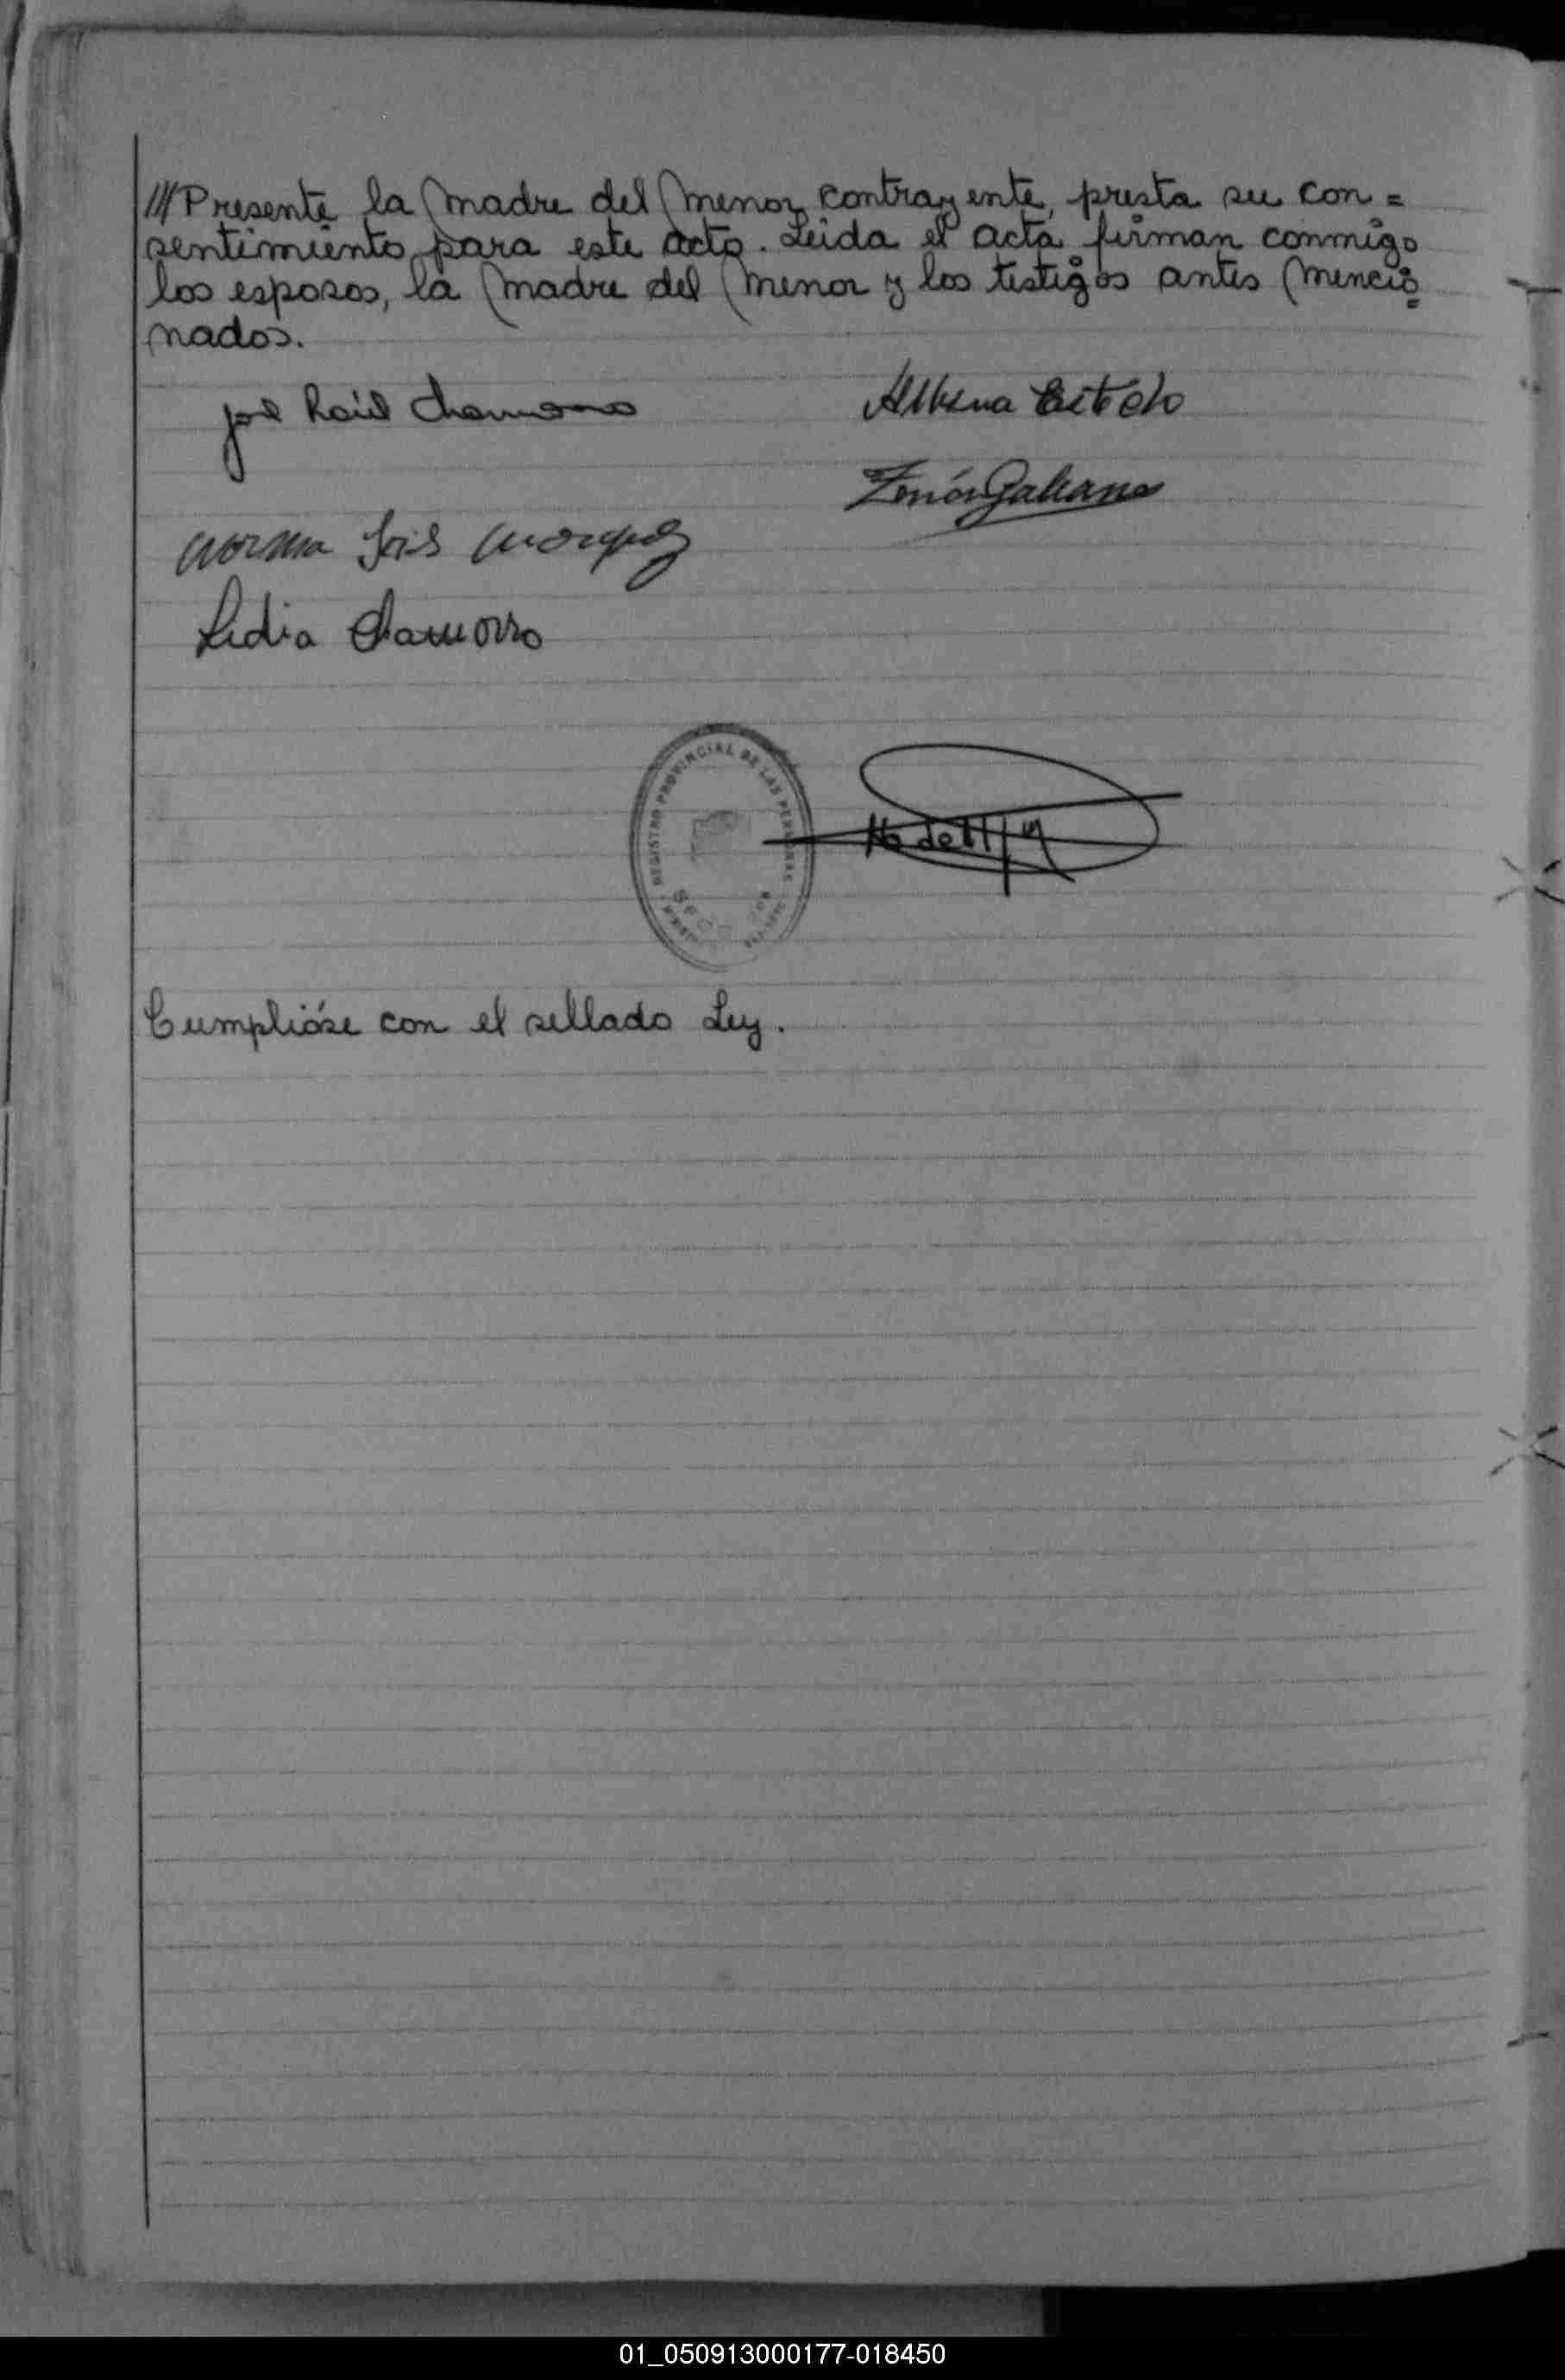 ///Presente la madre del menor contrayente, presta su con=
sentimiento para este acto. Leida el acta firman conmigo
los esposos, la madre del menor y los testigos antes mencio=
nados.
José Raúl Chamorro
Albina
Zenón Galeano
Norma Iris
Lidia Chamorro
REGISTRO PROVINCIAL DE LAS PERSONAS
Cumplióse con el sellado Ley.
01_050913000177-018450